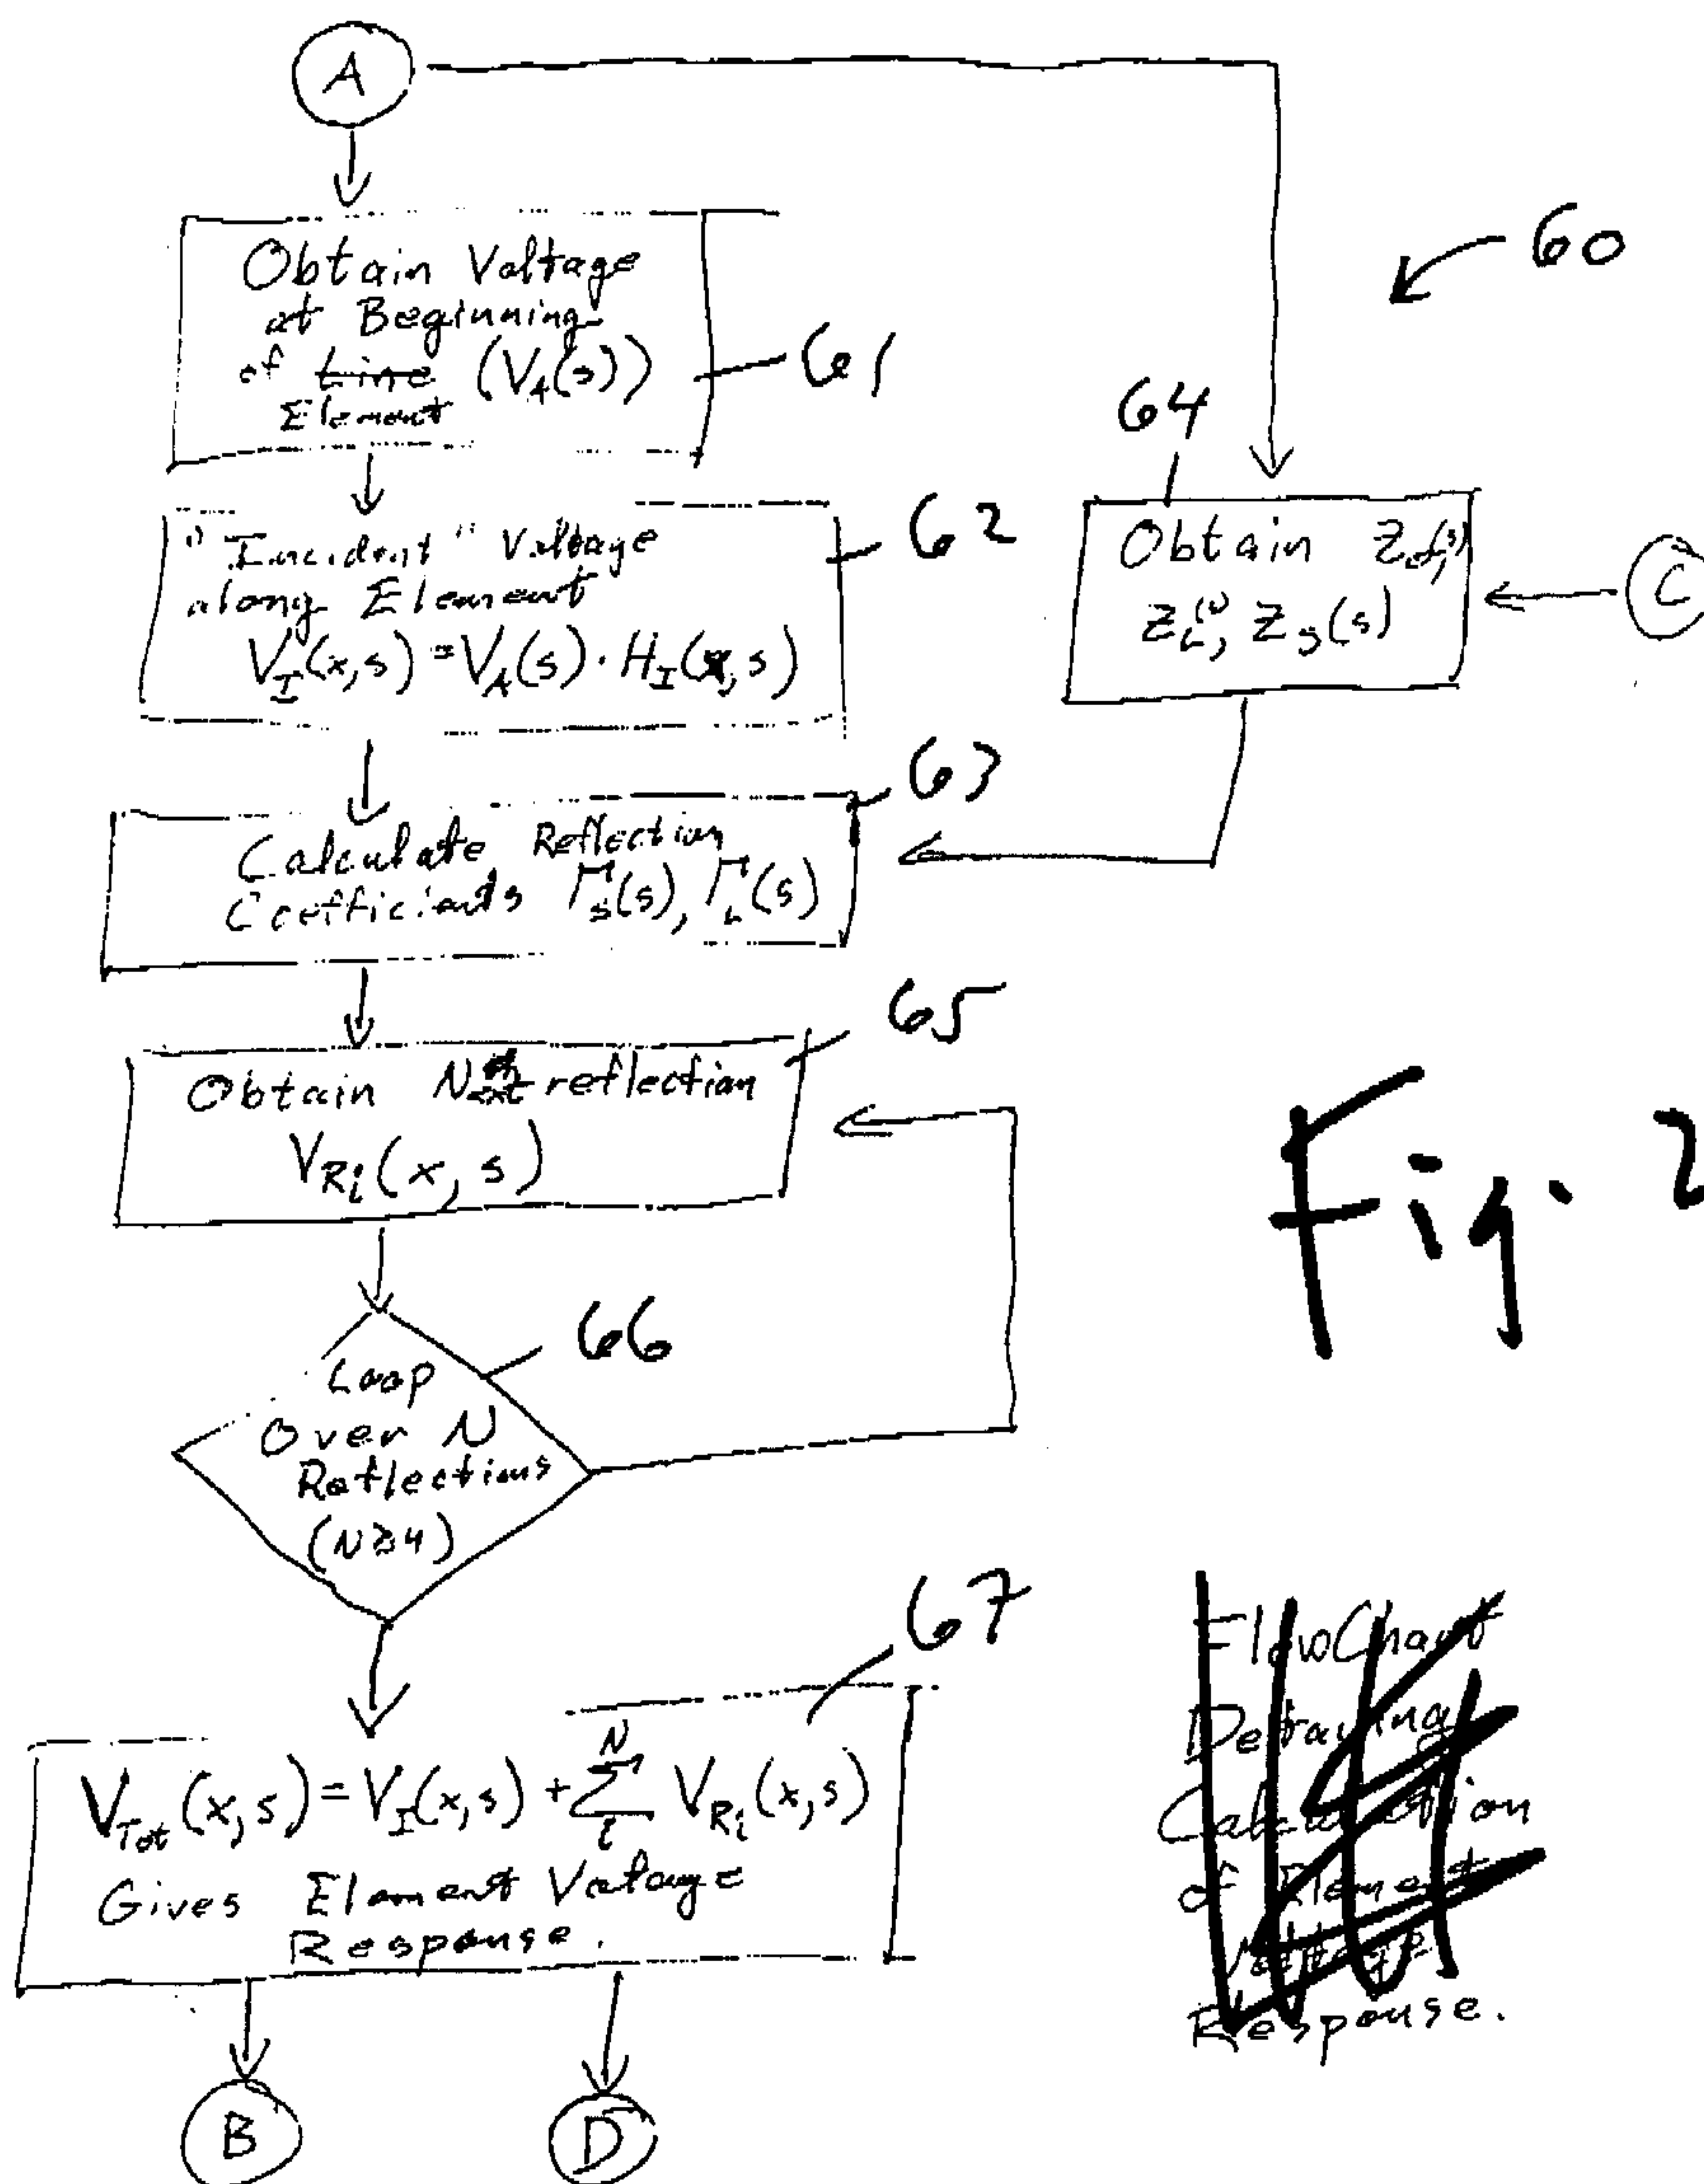 A
60
Obtain Voltage
at Beginning
of Line (V_A(s))
Element
61
"Incident" Voltage
along Element
V_I(x,s) = V_A(s) · H_I(x,s)
62
64
Obtain
Z_L(s), Z_S(s)
C
Calculate Reflection
Coefficients Γ_S(s), Γ_L(s)
63
Obtain reflection
V_Ri(x, s)
65
Loop
Over N
Reflections
(N≥4)
66
Fig. 2
67
V_Tot(x,s) = V_I(x,s) + Σ_i^N V_Ri(x,s)
Gives Element Voltage
Response.
FlowChart
Detailing
Calculation
of Element
Voltage
Response.
B
D